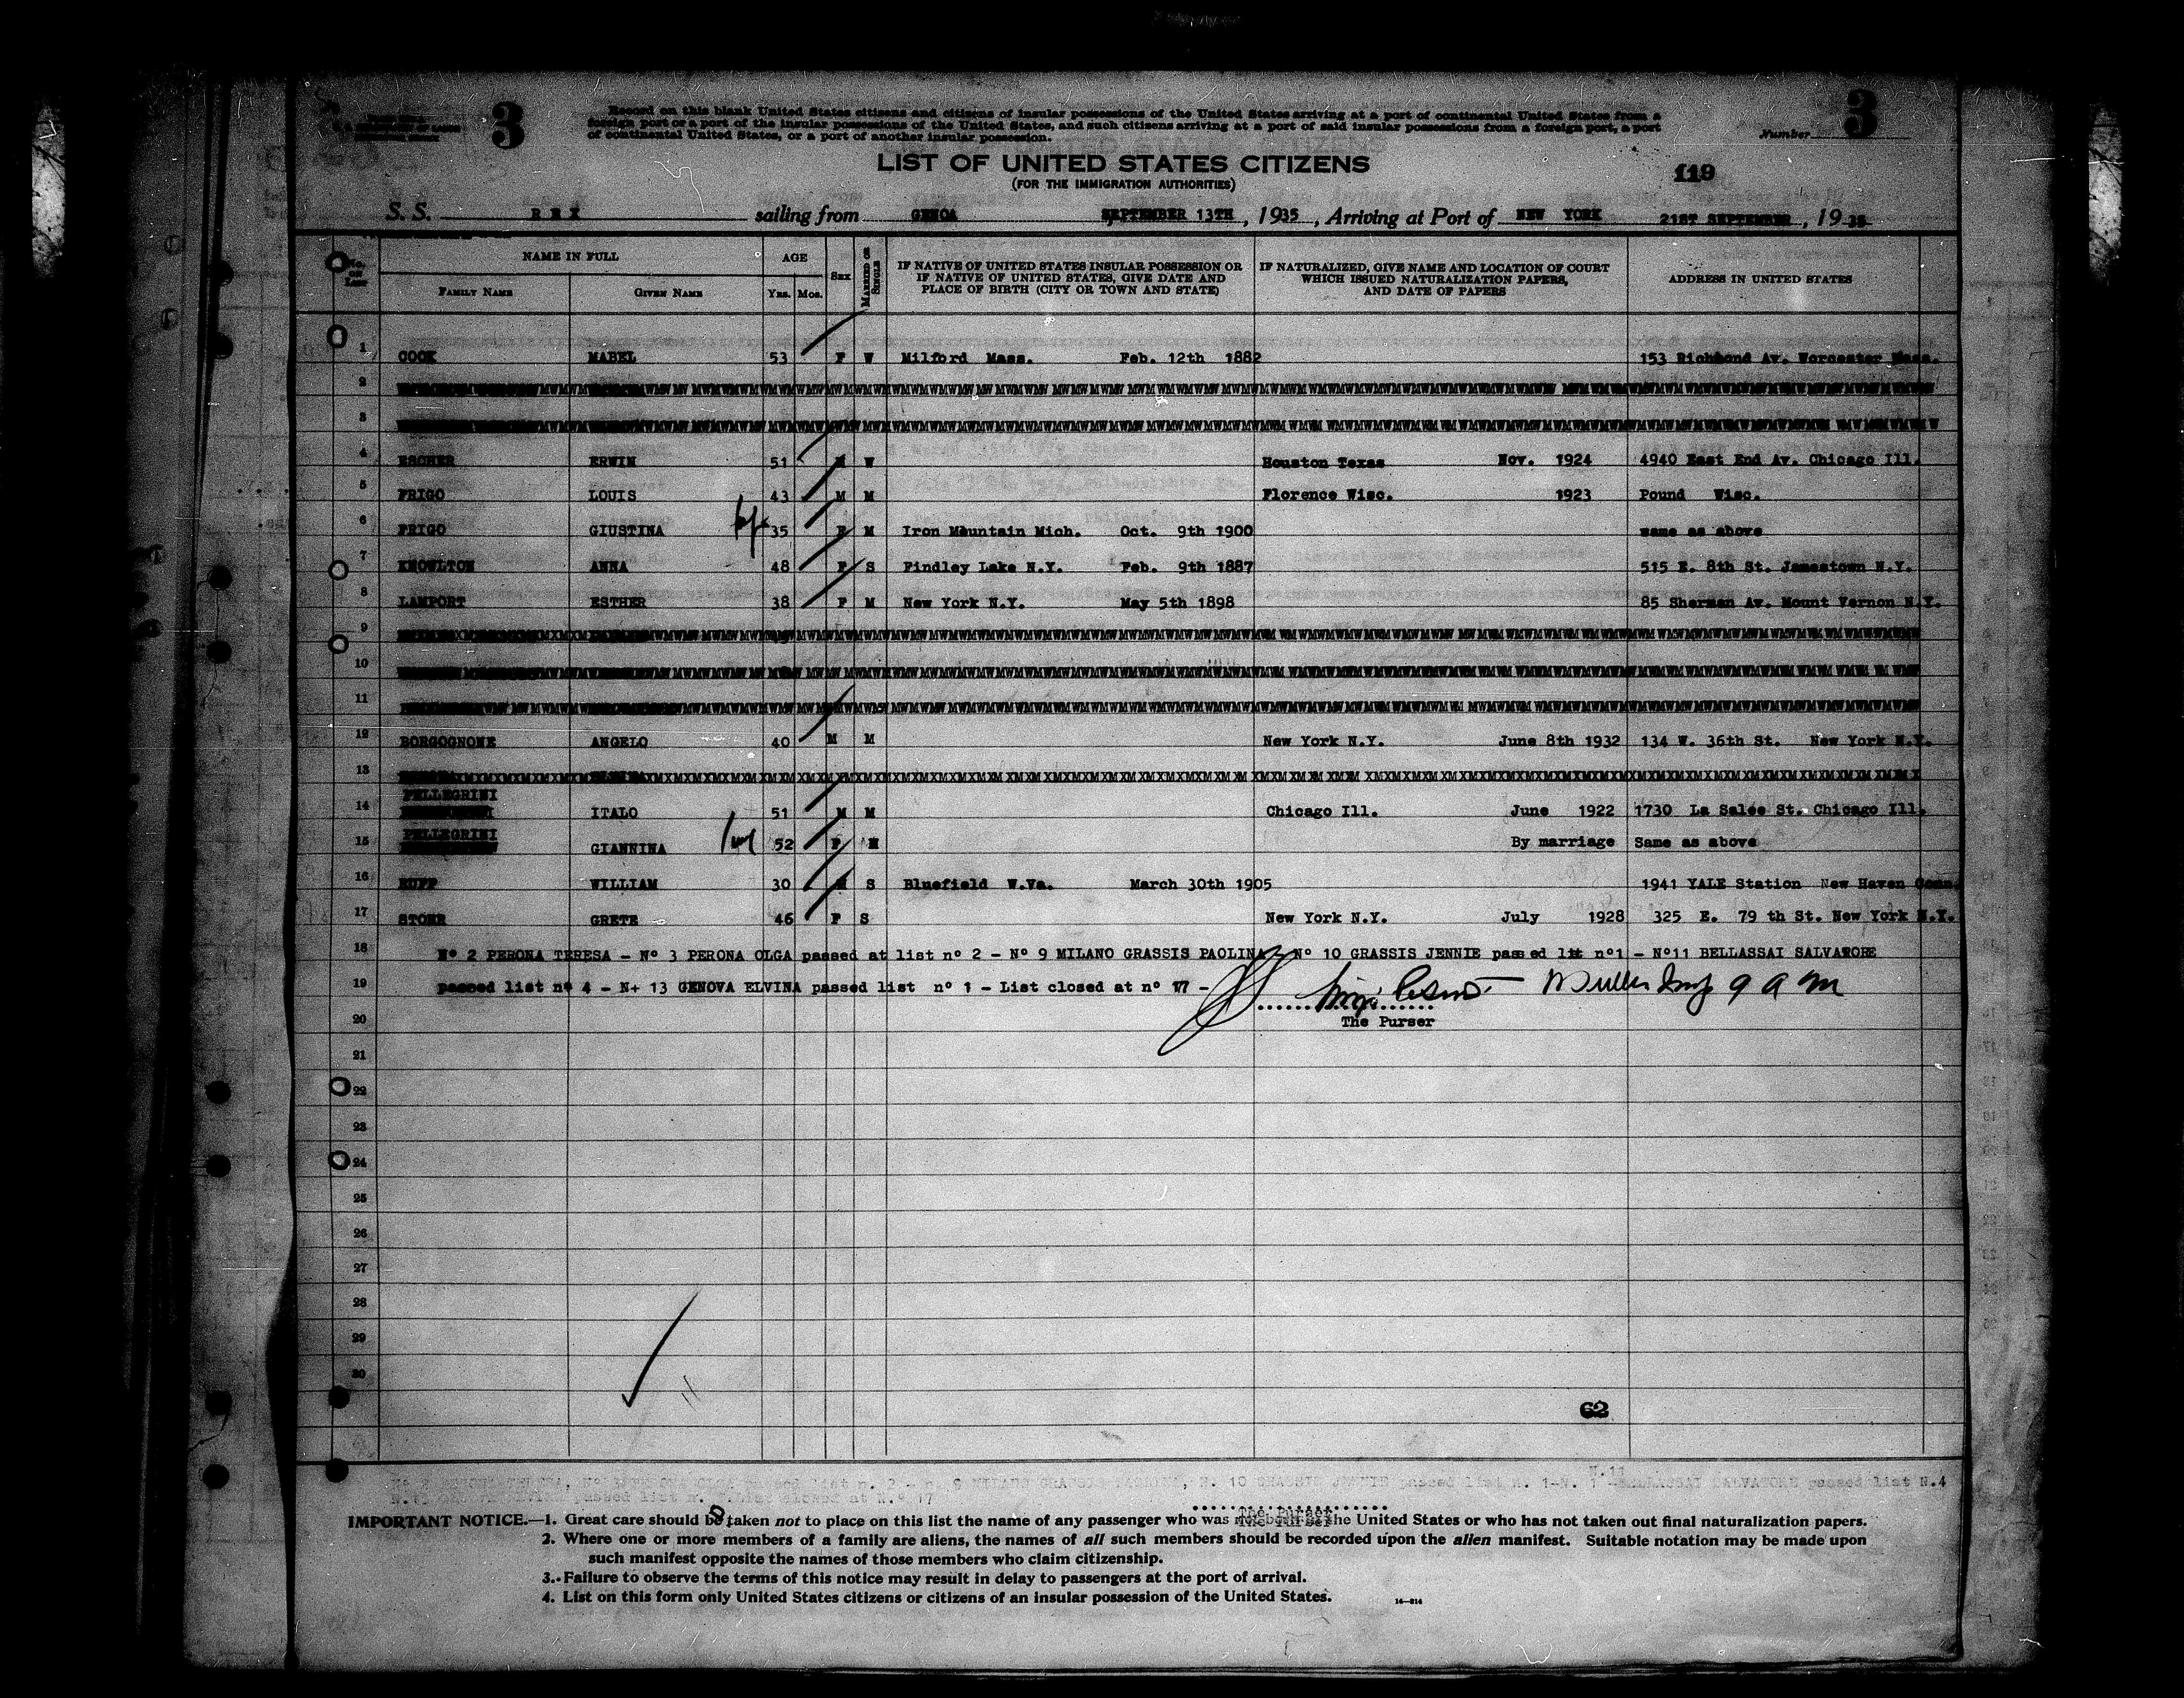 3
Record on this blank United States citizens and citizens of insular possessions of the United States arriving at a port of continental United States from a
foreign port or a port of the insular possessions of the United States, and such citizens arriving at a port of said insular possessions from a foreign port, a port
of continental United States, or a port of another insular possession.
Number 3
LIST OF UNITED STATES CITIZENS
(FOR THE IMMIGRATION AUTHORITIES)
119
S. S. REX sailing from GENOA SEPTEMBER 13TH, 1935, Arriving at Port of NEW YORK 21ST SEPTEMBER, 1935
No. on List NAME IN FULL FAMILY NAME GIVEN NAME AGE YRS. MOS. SEX MARRIED OR SINGLE IF NATIVE OF UNITED STATES INSULAR POSSESSION OR IF NATIVE OF UNITED STATES, GIVE DATE AND PLACE OF BIRTH (CITY OR TOWN AND STATE) IF NATURALIZED, GIVE NAME AND LOCATION OF COURT WHICH ISSUED NATURALIZATION PAPERS, AND DATE OF PAPERS ADDRESS IN UNITED STATES
1 COOK MABEL 53 F W Milford Mass. Feb. 12th 1882 153 Richmond Av. Worcester Mass.
2
3
4 ESCHER ERWIN 51 M W Houston Texas Nov. 1924 4940 East End Av. Chicago Ill.
5 FRIGO LOUIS 43 M M Florence Wisc. 1923 Pound Wisc.
6 FRIGO GIUSTINA 35 F M Iron Mountain Mich. Oct. 9th 1900 same as above
7 KNOWLTON ANNA 48 F S Findley Lake N.Y. Feb. 9th 1887 515 E. 8th St. Jamestown N.Y.
8 LAMPORT ESTHER 38 F M New York N.Y. May 5th 1898 85 Sherman Av. Mount Vernon N.Y.
9
10
11
12 BORGOGNONE ANGELO 40 M M New York N.Y. June 8th 1932 134 W. 36th St. New York N.Y.
13
14 PELLEGRINI ITALO 51 M M Chicago Ill. June 1922 1730 La Salee St. Chicago Ill.
15 PELLEGRINI GIANNINA 52 F M By marriage Same as above
16 RUFF WILLIAM 30 M S Bluefield W.Va. March 30th 1905 1941 YALE Station New Haven Conn.
17 STOHR GRETE 46 F S New York N.Y. July 1928 325 E. 79 th St. New York N.Y.
18 Nº 2 PERONA TERESA - Nº 3 PERONA OLGA passed at list nº 2 - Nº 9 MILANO GRASSIS PAOLINA - Nº 10 GRASSIS JENNIE passed list nº1 - Nº11 BELLASSAI SALVATORE
19 passed list nº 4 - N+ 13 GENOVA ELVINA passed list nº 1 - List closed at nº 17 - 9 a m
20 The Purser
21
22
23
24
25
26
27
28
29
30
62
passed list n. 2 - n. 9 MILANO GRASSIS PAOLINA, N. 10 GRASSIS JENNIE passed list n. 1-N. 11 BELLASSAI SALVATORE passed list N.4
passed list n. list closed at N.º 17
The Purser
IMPORTANT NOTICE.—1. Great care should be taken not to place on this list the name of any passenger who was not born in the United States or who has not taken out final naturalization papers.
2. Where one or more members of a family are aliens, the names of all such members should be recorded upon the alien manifest. Suitable notation may be made upon
such manifest opposite the names of those members who claim citizenship.
3. Failure to observe the terms of this notice may result in delay to passengers at the port of arrival.
4. List on this form only United States citizens or citizens of an insular possession of the United States.
14—814